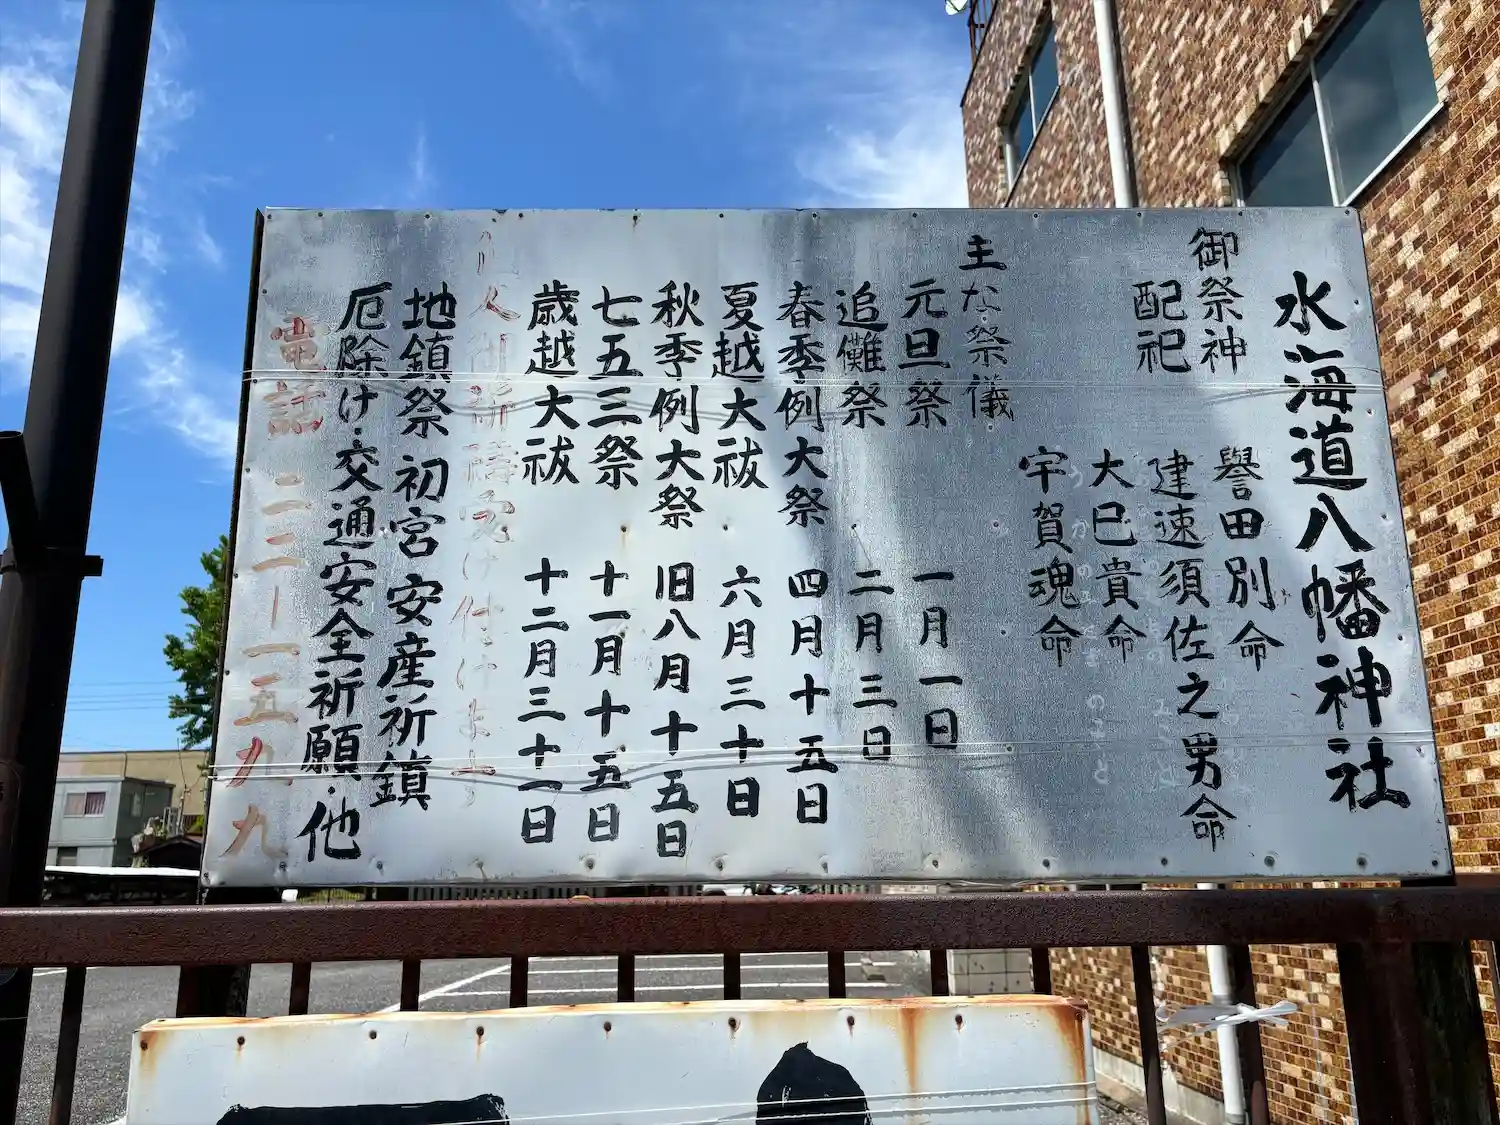 水海道八幡神社
御祭神
譽田別命
配祀
建速須佐之男命
大巳貴命
宇賀魂命
主な祭儀
元旦祭 一月一日
追儺祭 二月三日
春季例大祭 四月十五日
夏越大祓 六月三十日
秋季例大祭 旧八月十五日
七五三祭 十一月十五日
歳越大祓 十二月三十一日
御祈禱受け付けます
地鎮祭 初宮 安産祈鎮
厄除け・交通安全祈願・他
電話 二二ー一五九九